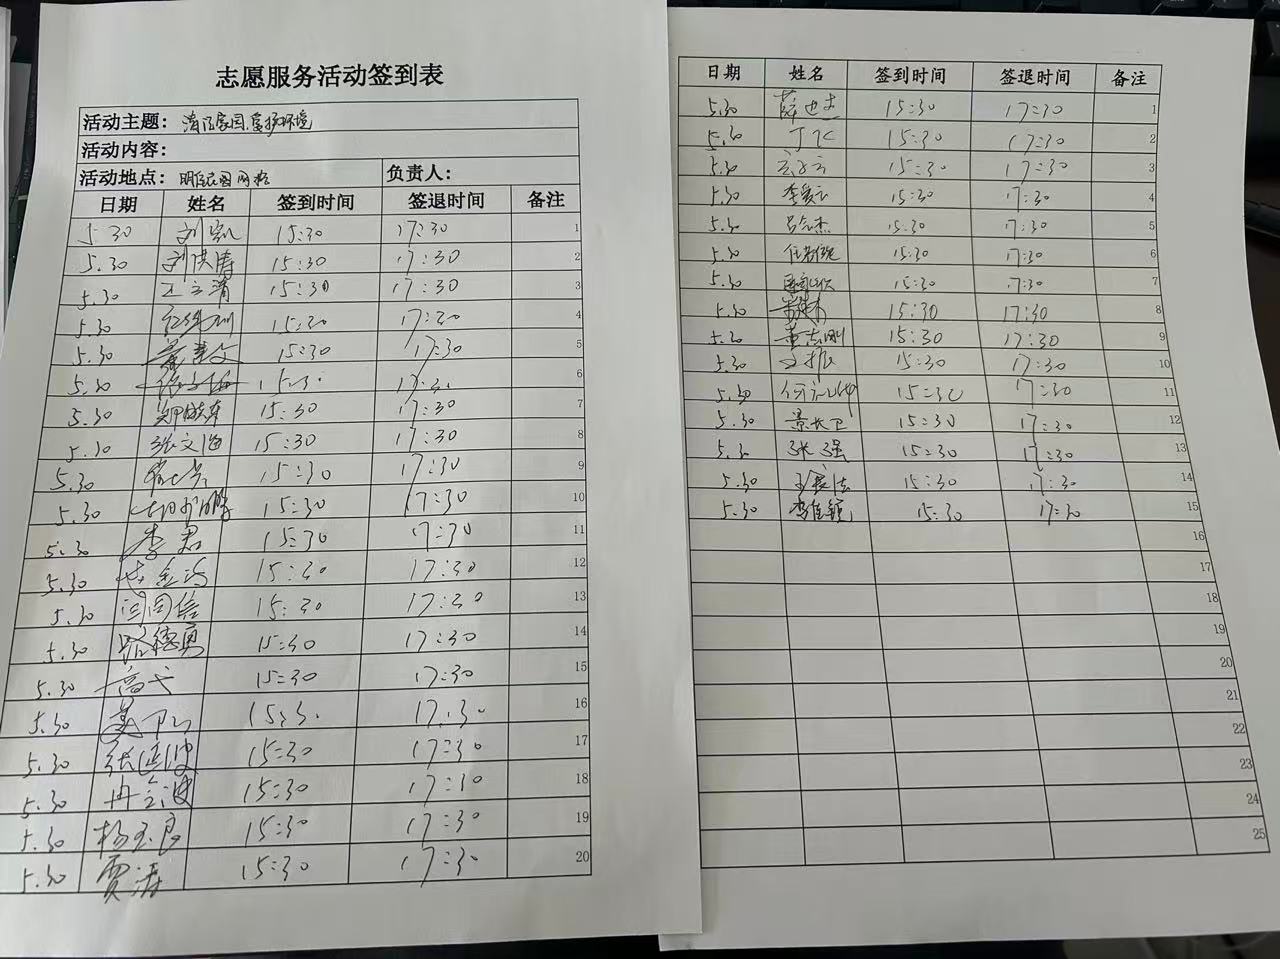 志愿服务活动签到表
活动主题: 清洁家园,爱护环境
活动内容:
活动地点: 网格 负责人:
日期 姓名 签到时间 签退时间 备注
5.30 刘凯 15:30 17:30 1
5.30 刘洪涛 15:30 17:30 2
5.30 王立清 15:30 17:30 3
5.30 15:30 17:30 4
5.30 15:30 17:30 5
5.30 15:30 17:30 6
5.30 15:30 17:30 7
5.30 张文海 15:30 17:30 8
5.30 15:30 17:30 9
5.30 15:30 17:30 10
5.30 李君 15:30 17:30 11
5.30 15:30 17:30 12
5.30 闫同信 15:30 17:30 13
5.30 路德勇 15:30 17:30 14
5.30 15:30 17:30 15
5.30 15:30 17:30 16
5.30 张延波 15:30 17:30 17
5.30 冉会波 15:30 17:30 18
5.30 杨玉良 15:30 17:30 19
5.30 贾涛 15:30 17:30 20
日期 姓名 签到时间 签退时间 备注
5.30 15:30 17:30 1
5.30 15:30 17:30 2
5.30 15:30 17:30 3
5.30 15:30 17:30 4
5.30 吕念杰 15:30 17:30 5
5.30 15:30 17:30 6
5.30 15:30 17:30 7
5.30 15:30 17:30 8
5.30 董志刚 15:30 17:30 9
5.30 王振 15:30 17:30 10
5.30 15:30 17:30 11
5.30 景长卫 15:30 17:30 12
5.30 张强 15:30 17:30 13
5.30 15:30 17:30 14
5.30 15:30 17:30 15
16
17
18
19
20
21
22
23
24
25